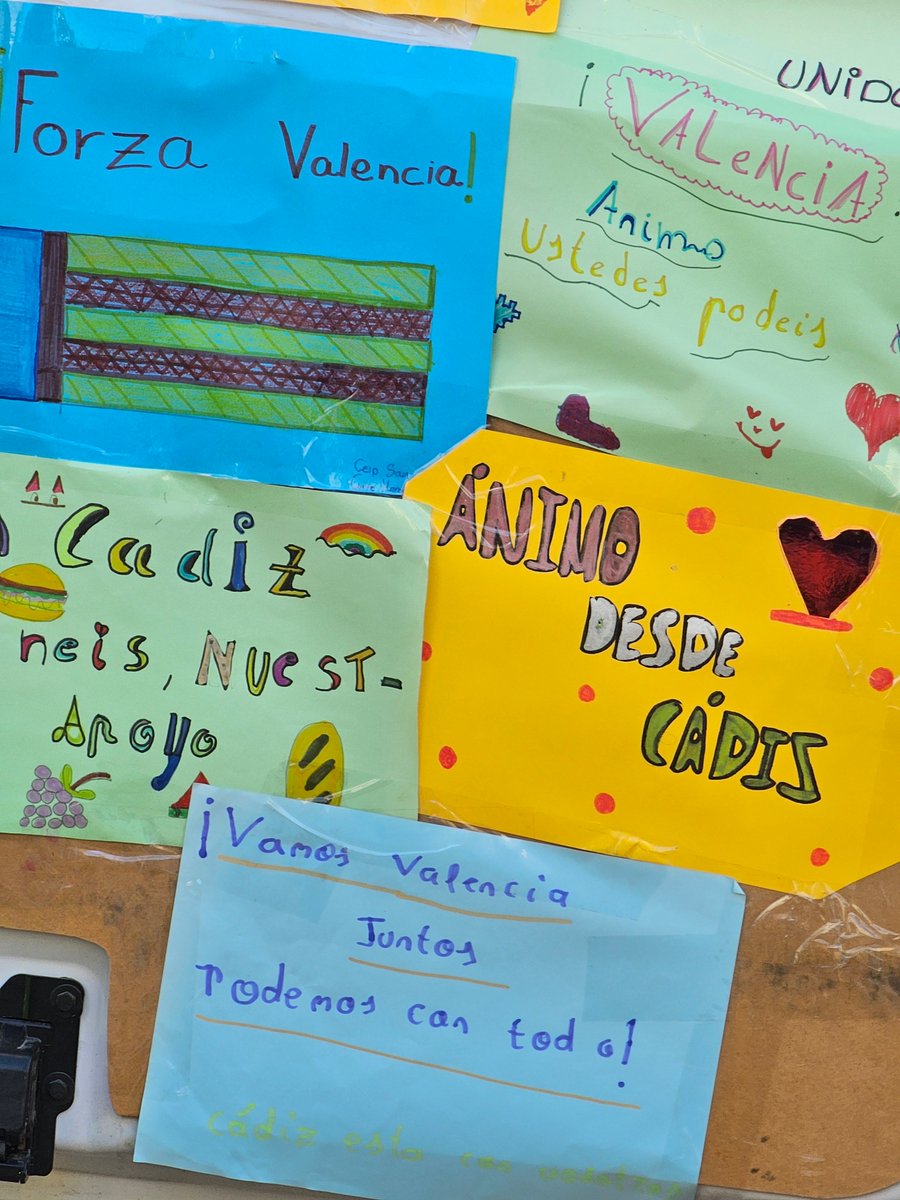 Forza Valencia!
Ceip San
UNIDO
¡VALeNCiA
Animo
Ustedes podeis
Cadiz
neis, NuesT-
Apoyo
ÁNIMO
DESDE
CÁDIS
¡Vamos Valencia
Juntos
Podemos con todo!
Cádiz esta con vosotros